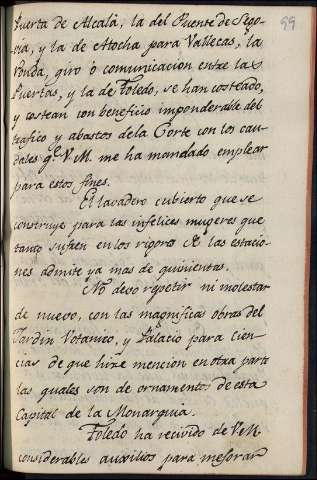 99
Puerta de Alcalá, la del Puente de Sego-
via, y la de Atocha para Vallecas, la
Ronda, giro ò comunicacion entre las
Puertas, y la de Toledo, se han costeado,
y costean con beneficio imponderable del
trafico y abastos dela Corte con los cau-
dales q.e V.M. me ha mandado emplear
para estos fines.
El lavadero cubierto que se
construye para las infelices mugeres que
tanto sufren en los rigores de las estacio-
nes admite ya mas de quinientas.
No devo repetir ni molestar
de nuevo, con las magnificas obras del
Jardin Votanico, y Palacio para cien-
cias de que hize mencion en otra parte
las quales son de ornamento de esta
Capital de la Monarquia.
Toledo ha recivido de V.M.
considerables auxilios para mejorar